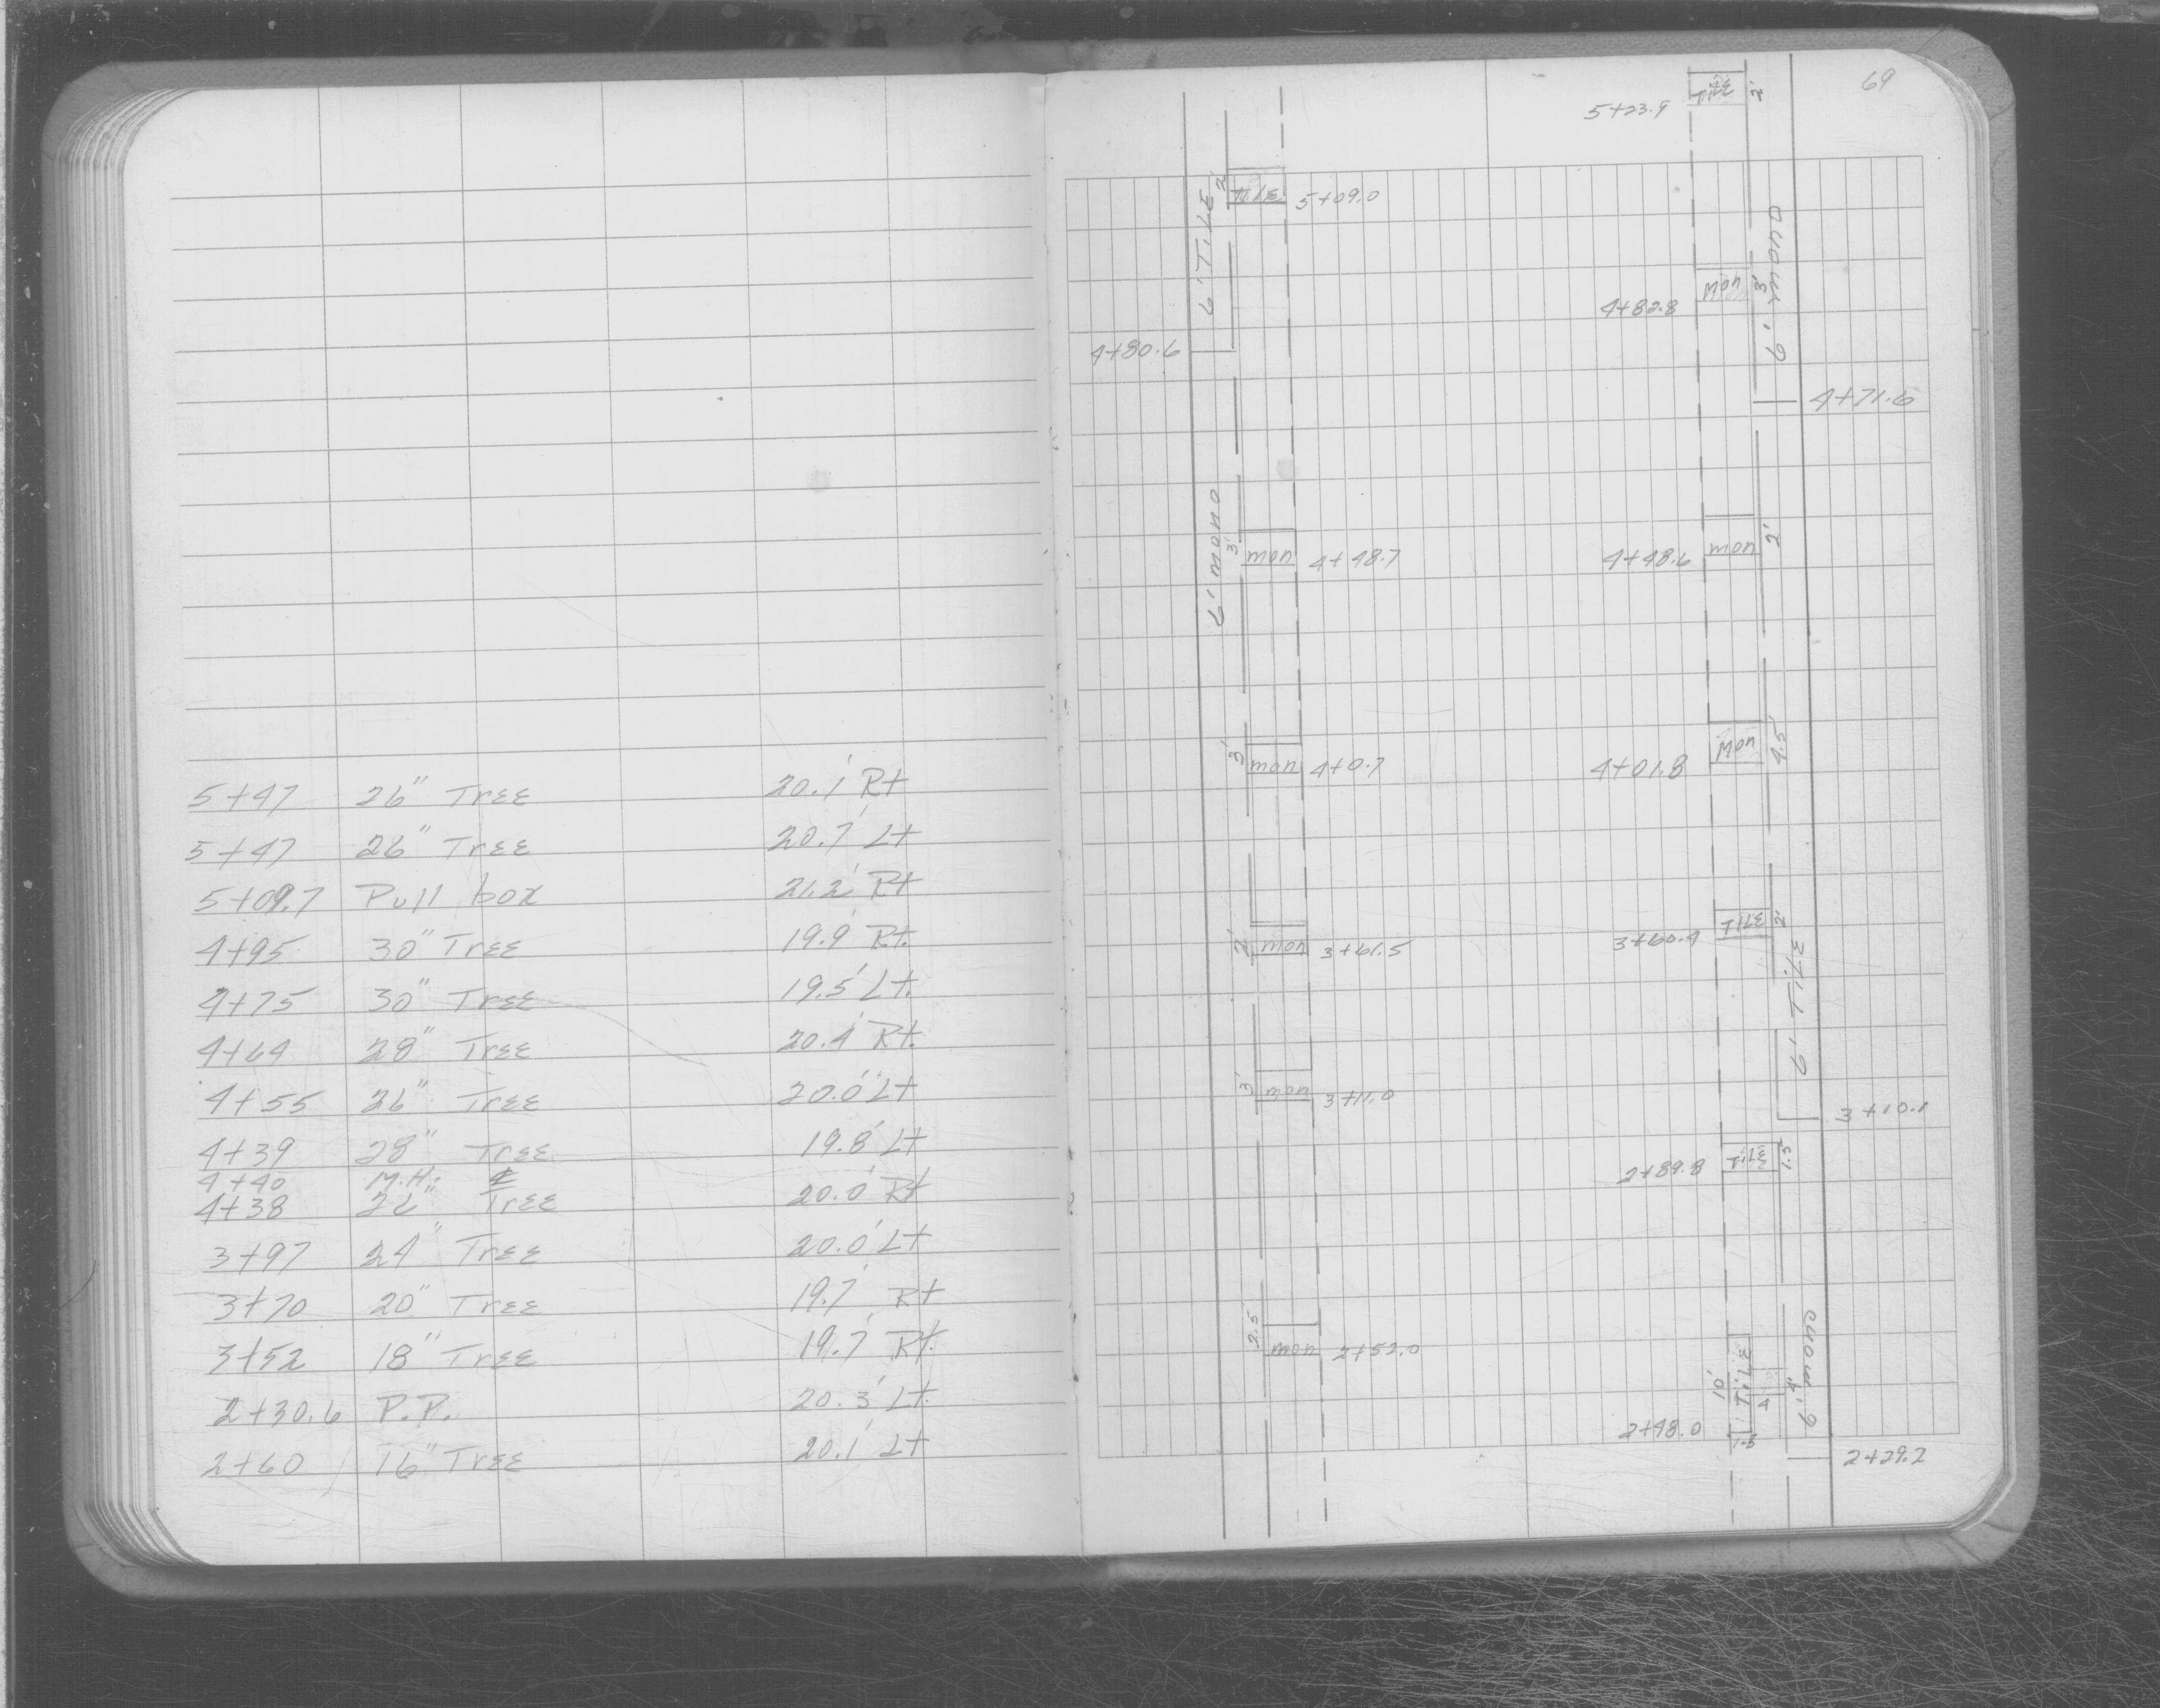 5+47 26" Tree 20.1' Rt
5+47 26" Tree 20.7' Lt
5+09.7 Pull box 21.2' Rt
4+95 30" Tree 19.9' Rt.
4+75 30" Tree 19.5' Lt.
4+64 28" Tree 20.4' Rt.
4+55 26" Tree 20.0' Lt
4+39 28" Tree 19.8' Lt
4+40 M.H. ℄
4+38 22" Tree 20.0' Rt
3+97 24" Tree 20.0' Lt
3+70 20" Tree 19.7' Rt
3+52 18" Tree 19.7' Rt.
2+30.6 P.P. 20.3' Lt.
2+60 16" Tree 20.1' Lt
69
5+23.9 TILE 2'
6' TILE
2' TILE 5+09.0
6' mono
4+82.8 Mon 3'
4+80.6
4+71.6
6' mono
3' mon 4+48.7
4+48.6 mon 2'
3' mon 4+0.7
4+01.8 Mon 4.5'
2' mon 3+61.5
3+60.4 TILE 2'
6' TILE
3' mon 3+11.0
3+10.1
2+89.8 TILE 1.5'
2.5' mon 2+52.0
6' mono
10' TILE 4' 4'
2+48.0 1.5
2+29.2